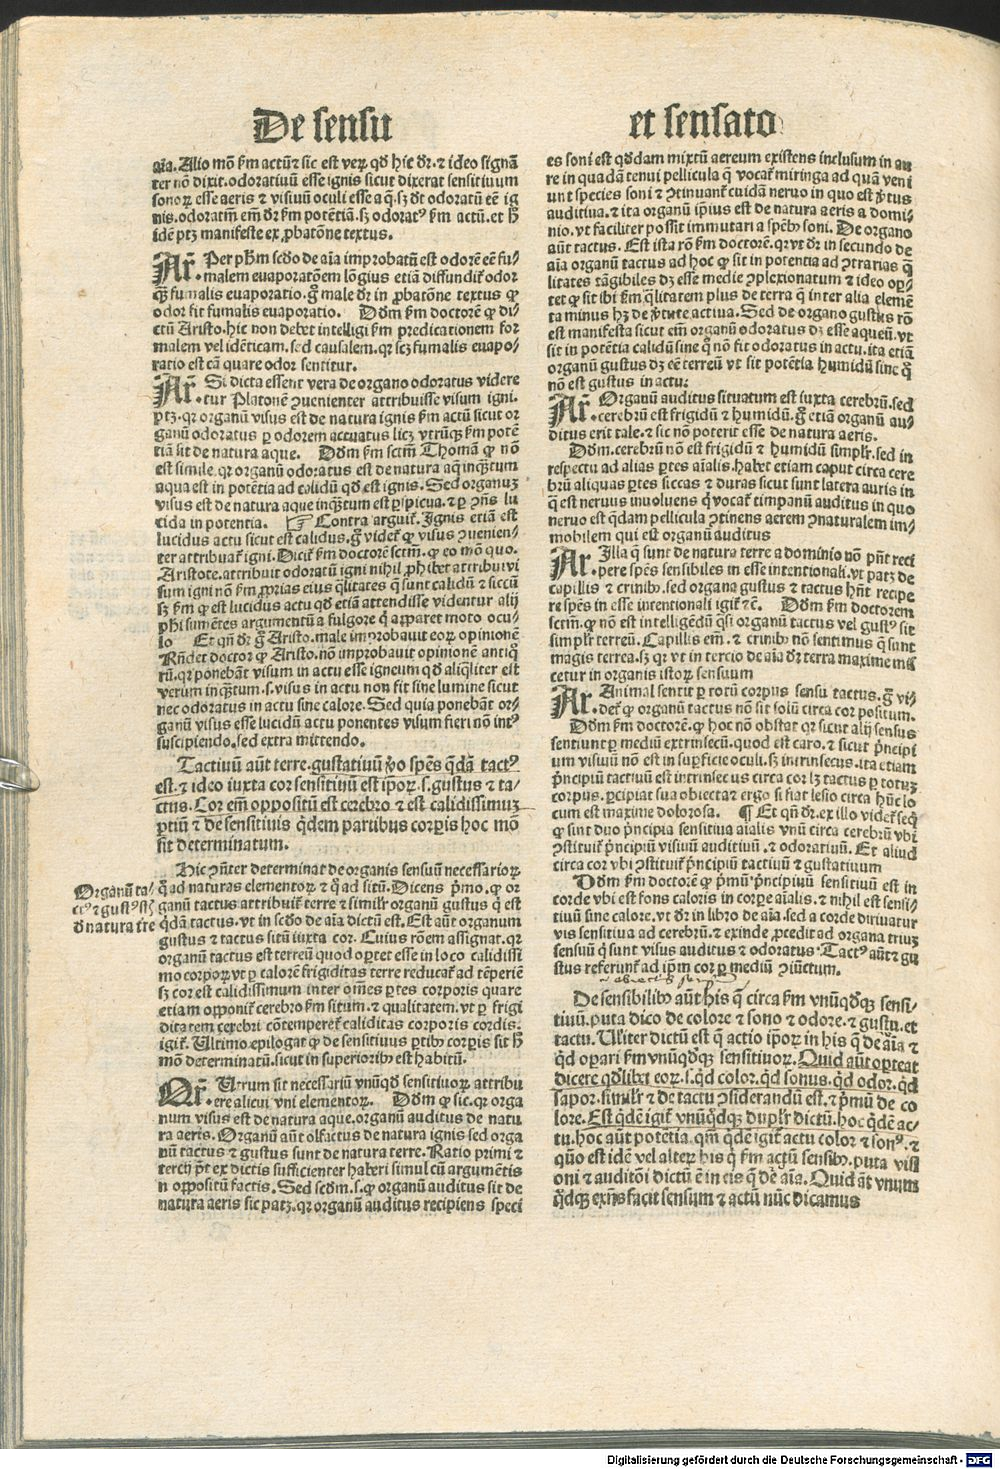 De sensu et sensato
aĩa. Alio mõ ẜm actũ ⁊ sic est veꝝ qd̕ hic dr̃. ⁊ ideo signã
ter nõ dixit. odoratiuũ esse ignis sicut dixerat sensitiuum
sonoꝝ esse aeris ⁊ visiuũ oculi esse aq̃. sꝫ dʒ odoratũ eẽ ig
nis. odoratiuũ em̃ dr̃ ẜm potẽtiã. sꝫ odoratꝰ ẜm actũ. et h̃
idẽ ptꝫ manifeste ex ꝓbatõne textus.
Ar̃. Per ph̃m scd̕o de aĩa improbatũ est odorẽ eẽ fu⸗
malem euaporatõem lõgius etiã diffundit̃ odor
q̃ꝫ fumalis euaporatio. g̃ male dr̃ in ꝓbatõne textus ꝙ
odor sit fumalis euaporatio. Dõm ẜm doctorẽ ꝙ di⸗
ctũ Aristo. hic non debet intelligi ẜm predicationem for
malem vel idẽticam. sed causalem. qr scꝫ fumalis euapo⸗
ratio est cã quare odor sentitur.
Ar̃. Si dicta essent vera de organo odoratus videre
tur Platonẽ ꝯuenienter attribuisse visum igni.
ptꝫ. qr organũ visus est de natura ignis ẜm actũ sicut or
ganũ odoratus ꝑ odorem actuatus licꝫ vtrũqꝫ ẜm potẽ
tiã sit de natura aque. Dõm ẜm sctm̃ Thomã ꝙ nõ
est simile. qr organũ odoratus est de natura aq̃ inqꝫtum
aqua est in potẽtia ad calidũ qd̕ est ignis. Sed organuꝫ
visus est de natura aque inqꝫtum est ꝑspicua. ⁊ ꝑ ꝯñs lu
cida in potentia. ☞ Contra arguit̃. Ignis etiã est
lucidus actu sicut est calidus. g̃ videt̃ ꝙ visus ꝯuenien⸗
ter attribuat̃ igni. Dicit̃ ẜm doctorẽ sctm̃. ꝙ eo mõ quo.
Aristote. attribuit odoratũ igni nihil ꝓhibet attribui vi
sum igni nõ ẜm ꝓprias eius q̃litates q̃ sunt calidũ ⁊ siccũ
sꝫ ẜm ꝙ est lucidus actu qd̕ etiã attendisse videntur alij
ph̃i sumẽtes argumentũ a fulgore q̃ apparet moto ocu⸗
lo Et qñ dr̃ g̃ Aristo. male improbauit eoꝝ opinionẽ
Rñdet doctor ꝙ Aristo. nõ improbauit opinionẽ antiq̃
rũ. qr ponebãt visum in actu esse igneum qd̕ aliq̃liter est
verum inqꝫtum .s. visus in actu non fit sine lumine sicut
nec odoratus in actu sine calore. Sed quia ponebãt or⸗
ganũ visus esse lucidũ actu ponentes visum fieri nõ intꝰ
suscipiendo. sed extra mittendo.
Tactiuũ aũt terre. gustatiuũ ꝟo spẽs q̃dã tactꝰ
est. ⁊ ideo iuxta cor sensitiuũ est ip̃oꝝ .s. gustus ⁊ ta⸗
ctus. Cor em̃ oppositũ est cerebro ⁊ est calidissimuꝫ
ꝑtiũ ⁊ de sensitiuis q̃dem partibus corꝑis hoc mõ
sit determinatum.
Hic ꝯñter determinat de organis sensuũ necessarioꝝ
q̃ ad naturas elementoꝝ ⁊ q̃ ad sitũ. Dicens p̃mo. ꝙ or
ganũ tactus attribuit̃ terre ⁊ simil̃r organũ gustus q̃ est
q̃dã tactus. vt in scd̕o de aĩa dictũ est. Est aũt organum
gustus ⁊ tactus sitũ iuxta cor. Cuius rõem assignat. qr
organũ tactus est terreũ quod oꝑtet esse in loco calidissi
mo corpoꝝ vt ꝑ calorẽ frigiditas terre reducat̃ ad tẽperiẽ
sꝫ cor est calidissimum inter om̃es ꝑtes corporis quare
etiam opponit̃ cerebro ẜm situm. ⁊ qualitatem. vt ꝑ frigi
ditatem cerebri cõtemperet̃ caliditas corporis cordis.
igit̃. Ultimo epilogat ꝙ de sensitiuis ꝑtibꝰ corꝑis sit h̃
mõ determinatũ. sicut in superioribꝰ est habitũ.
Organũ ta⸗
ctꝰ ⁊ gustꝰ st̃
d̕ natura tr̃e
Qr̃. Utrum sit necessariũ vnũqd̕ sensitiuoꝝ attribu
ere alicui vni elementoꝝ. Dõm ꝙ sic. qr orga
num visus est de natura aque. organũ auditus de natu
ra aeris. Organũ aũt olfactus de natura ignis sed orga
nũ tactus ⁊ gustus sunt de natura terre. Ratio primi ⁊
tercij pʒ ex dictis sufficienter haberi simul cũ argumẽtis
in oppositũ factis. Sed scd̕m .s. ꝙ organũ auditus sit de
natura aeris sic patꝫ. qr organũ auditus recipiens speci
es soni est qd̕dam mixtũ aereum existens inclusum in au
re in quadã tenui pellicula q̃ vocat̃ miringa ad quã veni
unt species soni ⁊ ꝯtinuant̃ cuidã neruo in quo est ꝟtus
auditiua. ⁊ ita organũ ip̃ius est de natura aeris a domi⸗
nio. vt faciliter possit immutari a spẽbꝰ soni. De organo
aũt tactus. Est ista rõ ẜm doctorẽ. qr vt dr̃ in secundo de
aĩa organũ tactus ad hoc ꝙ sit in potentia ad ꝯtrarias q̃
litates tãgibiles dʒ esse medie ꝯplexionatum ⁊ ideo opʒ⸗
tet ꝙ sit ibi ẜm q̃litatem plus de terra q̃ inter alia elemẽ
ta minus hꝫ de ꝟtute actiua. Sed de organo gustus rõ
est manifesta sicut em̃ organũ odoratus dʒ esse aqueũ. vt
sit in potẽtia calidũ sine q̃ nõ fit odoratus in actu. ita etiã
organũ gustus dʒ eẽ terreũ vt sit potẽtia humidũ sine q̃
nõ est gustus in actu:
Ar̃. Organũ auditus situatum est iuxta cerebrũ. sed
cerebrũ est frigidũ ⁊ humidũ. g̃ etiã organũ au⸗
ditus erit tale. ⁊ sic nõ poterit esse de natura aeris.
Dõm. cerebrũ nõ est frigidũ ⁊ humidũ simpl̃r. sed in
respectu ad alias ꝑtes aĩalis. habet etiam caput circa cere
brũ aliquas ꝑtes siccas ⁊ duras sicut sunt latera auris in
q̃ est neruus inuoluens q̃ vocat̃ timpanũ auditus in quo
neruo est q̃dam pellicula ꝯtinens aerem ꝯnaturalem im⸗
mobilem qui est organũ auditus
Ar̃. Illa q̃ sunt de natura terre a dominio nõ pñt reci
pere spẽs sensibiles in esse intentionali. vt patꝫ de
capillis ⁊ crinibꝰ. sed organa gustus ⁊ tactus hñt recipe
re spẽs in esse intentionali igit̃ ⁊c̃. Dõm ẜm doctorem
sctm̃. ꝙ nõ est intelligẽdũ q̃si organũ tactus vel gustꝰ sit
simpl̃r terreũ. Capillis em̃. ⁊ crinibꝰ nõ sentimus q̃ sunt
magis terrea. sꝫ qr vt in tercio de aĩa dr̃ terra maxime mi
scetur in organis istoꝝ sensuum
Ar̃. Animal sentit ꝑ totũ corpus sensu tactus. g̃ vi⸗
det̃ ꝙ organũ tactus nõ sit solũ circa cor positum.
Dõm ẜm doctorẽ. ꝙ hoc nõ obstat qr sicut alij sensus
sentiunt ꝑ mediũ extrinsecũ. quod est caro. ⁊ sicut p̃ncipi
um visiuũ nõ est in suꝑficie oculi. sꝫ intrinsecus. ita etiam
p̃ncipiũ tactiuũ est intrinsecus circa cor lꝫ tactus ꝑ totuꝫ
corpus. ꝑcipiat sua obiecta ⁊ ergo si fiat lesio circa hũc lo
cum est maxime dolorosa. ¶ Et qñ dr̃. ex illo videt̃ seq̃
ꝙ sint duo p̃ncipia sensitiua aĩalis vnũ circa cerebrũ vbi
ꝯstituit̃ p̃ncipiũ visiuũ auditiuũ. ⁊ odoratiuũ. Et aliud
circa cor vbi ꝯstituit̃ p̃ncipiũ tactiuũ ⁊ gustatiuum
Dõm ẜm doctorẽ ꝙ p̃mũ p̃ncipiuũ sensitiuũ est in
corde vbi est fons caloris in corꝑe aĩalis. ⁊ nihil est sensi⸗
tiuũ sine calore. vt dr̃ in libro de aĩa. sed a corde diriuatur
vis sensitiua ad cerebrũ. ⁊ exinde ꝓcedit ad organa triuꝫ
sensuũ q̃ sunt visus auditus ⁊ odoratus. Tactꝰ aũt ⁊ gu
stus referunt̃ ad ip̃m cor ꝑ mediũ ꝯiũctum.
De sensibilibꝰ aũt his q̃ circa ẜm vnũqd̕qꝫ sensi⸗
tiuũ. puta dico de colore ⁊ sono ⁊ odore. ⁊ gustu. et
tactu. Ul̕iter dictũ est q̃ actio ip̃oꝝ in his q̃ de aĩa ⁊
q̃d oꝑari ẜm vnũqd̕qꝫ sensitiuoꝝ. Quid aũt oꝑteat
dicere qd̕libet eoꝝ .s. q̃d color. q̃d sonus. q̃d odor. q̃d
sapor. simil̃r ⁊ de tactu ꝯsiderandũ est. ⁊ p̃mũ de co
lore. Est q̃dẽ igit̃ vnũqd̕qꝫ dupl̃r dictũ. hoc q̃dẽ ac⸗
tu. hoc aũt potẽtia. qm̃ q̃dẽ igit̃ actu color ⁊ sonꝰ. ⁊
quõ est idẽ vel alteꝝ his q̃ ẜm actũ sensibꝰ. puta visi
oni ⁊ auditõi dictũ ẽ in eis q̃ de aĩa. Quid aũt vnumq̃dqꝫ
exñs facit sensum ⁊ actũ nũc dicamus
Digitalisierung gefördert durch die Deutsche Forschungsgemeinschaft - DFG